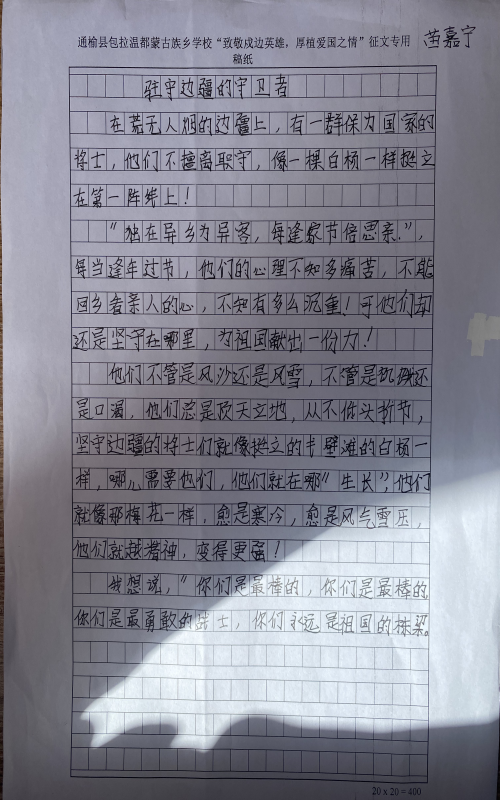 通榆县包拉温都蒙古族乡学校“致敬戍边英雄，厚植爱国之情”征文专用
稿纸
苗嘉宁
驻守边疆的守卫者
在荒无人烟的边疆上，有一群保力国家的
将士，他们不擅离职守，像一棵白杨一样挺立
在第一阵线上！
“独在异乡为异客，每逢家节倍思亲”，
每当逢年过节，他们的心理不知多痛苦，不能
回乡看亲人的心，不知有多么沉重！可他们却
还是坚守在哪里，为祖国献出一份力！
他们不管是风沙还是风雪，不管是饥饿还
是口渴，他们总是顶天立地，从不低头折节，
坚守边疆的将士们就像挺立的戈壁滩的白杨一
样，哪儿需要他们，他们就在哪“生长”，他们
就像那梅花一样，愈是寒冷，愈是风气雪压，
他们就越精神，变得更强！
我想说，“你们是最棒的，你们是最棒的
你们是最勇敢的战士，你们永远是祖国的栋梁。
20 x 20 = 400